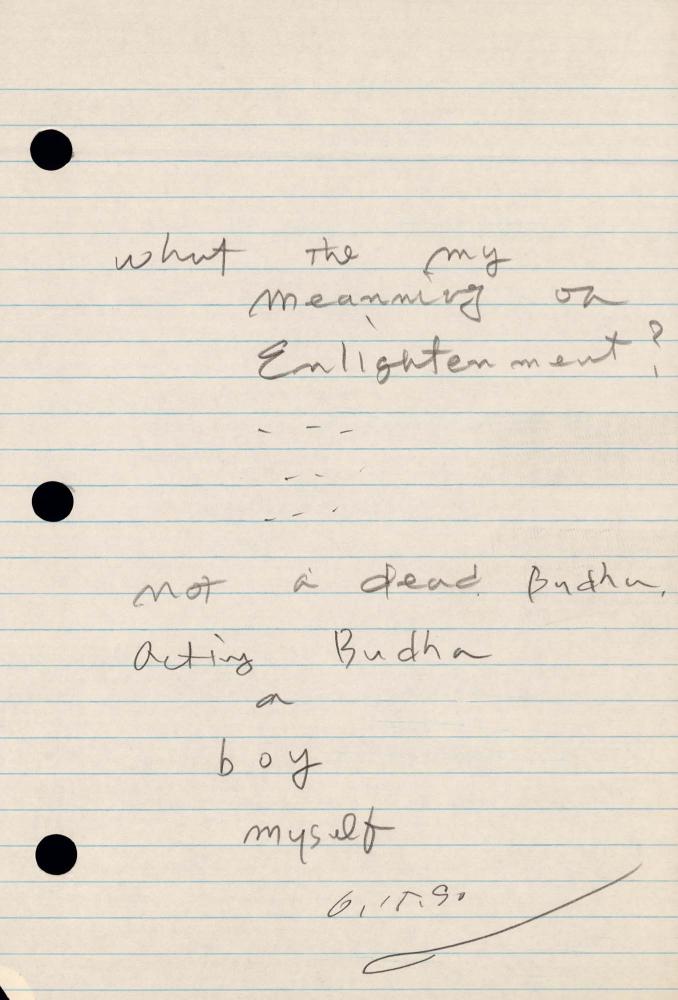 what the my
meanning on
Enlightenment?
- - -
- - -
- - -
not a dead Budha,
Acting Budha
a
boy
myself
6.15.90